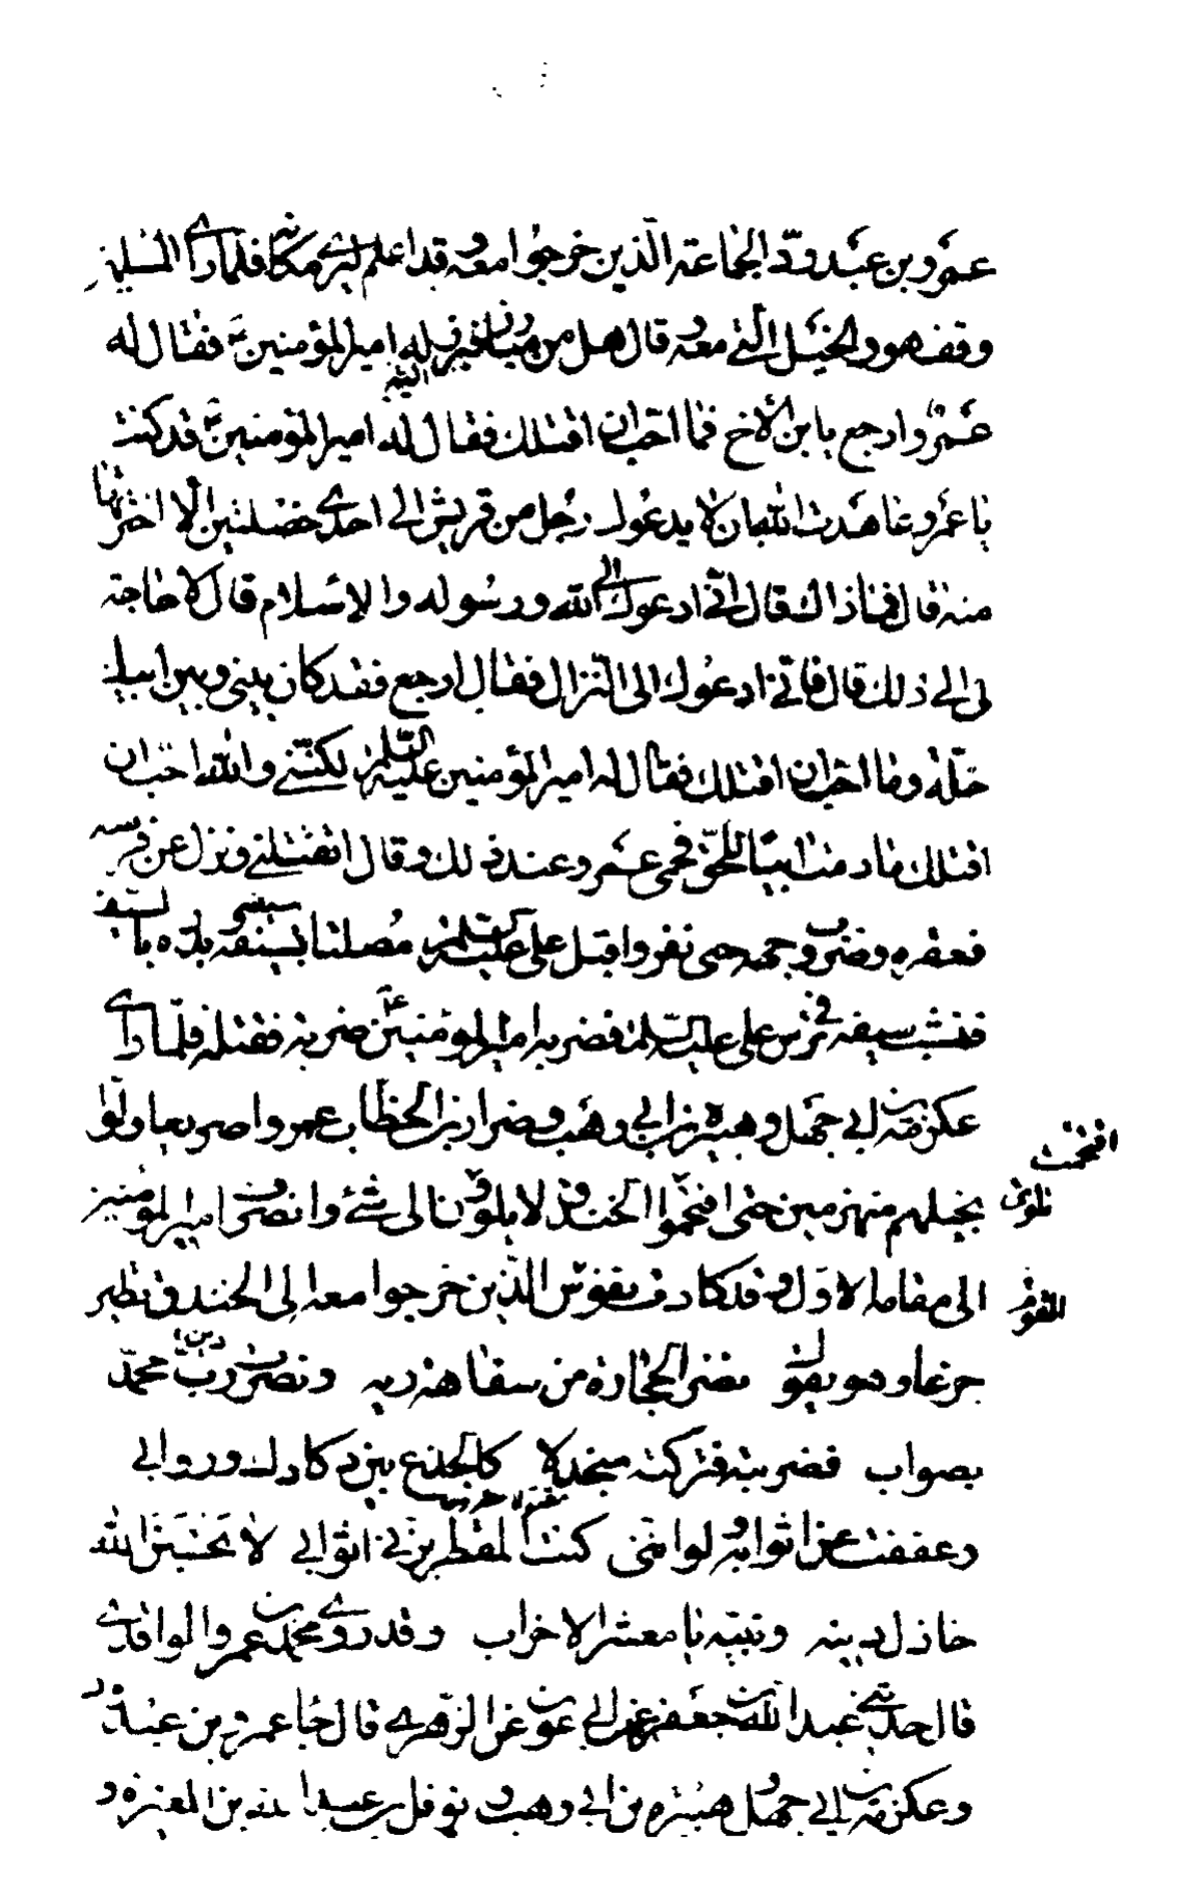 عمرو بن عبد ودّ والجماعة الّذين خرجوا معه وقد اعلم ليرى مكانه فلمّا رأى المسلمين
وقف هو والخيل الّتي معه وقال هل من مبارز فبرز اليه امير المؤمنين ع فقال له
عمرو ارجع يا بن الأخ فما احبّ ان اقتلك فقال له امير المؤمنين ع قد كنت
يا عمرو عاهدت الله ان لا يدعوك رجل من قريش الى احدى خصلتين الّا اخترتها
منه قال فما ذاك قال انّي ادعوك الى الله ورسوله والإسلام قال لا حاجة
لي الى ذلك قال فانّي ادعوك الى النّزال فقال ارجع فقد كان بيني وبين ابيك
خلّة وما احبّ ان اقتلك فقال له امير المؤمنين عليه السّلم لكنّني والله احبّ ان
اقتلك ما دمت ابيّا للحقّ فحمى عمرو عند ذلك وقال اتقتلني ونزل عن فرسه
فعقره وضرب وجهه حتى نفر واقبل على علي عليه السلم مصلتا بسيفه بدره بالسيف
فنشب سيفه في ترس علي عليه السلم فضربه امير المؤمنين ع ضربة فقتله فلمّا رأى
عكرمة بن ابي جهل وهبيرة بن ابي وهب وضرار بن الخطّاب عمروا صريعا ولّوا
بخيلهم منهزمين حتى اقتحموا الخندق لا يلوون الى شئ وانصرف امير المؤمنين
الى مقامه الاوّل وقد كادت نفوس الّذين خرجوا معه الى الخندق تطير
جزعا وهو يقول نصر الحجارة من سفاهة رأيه ونصرت ربّ محمّد
بصواب فضربته فتركته متجدّلا كالجذع بين دكادك وروابي
وعففت عن اثوابه ولو انّني كنت المقطّر بزّني اثوابي لا تحسبنّ الله
خاذل دينه ونبيّه يا معشر الاحزاب وقد روى محمّد بن عمر الواقدي
قال حدّثني عبد الله بن جعفر عن ابي عون عن الزّهري قال جاء عمرو بن عبد ود
وعكرمة بن ابي جهل وهبيرة بن ابي وهب ونوفل بن عبد الله بن المغيرة و
اقتحمت
تلوى
القوم